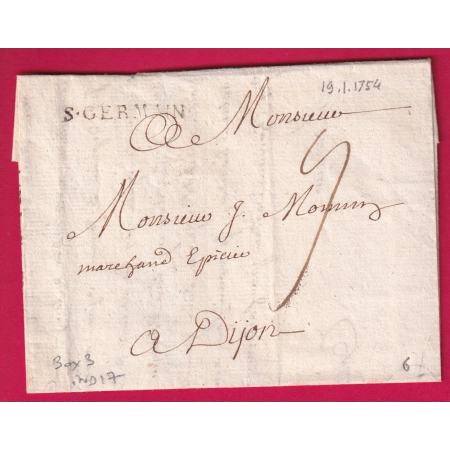 19.1.1754
S.GERMAIN
A Monsieur
Monsieur J. 
marchand Epicier
A Dijon
9
30x3
IND17
6